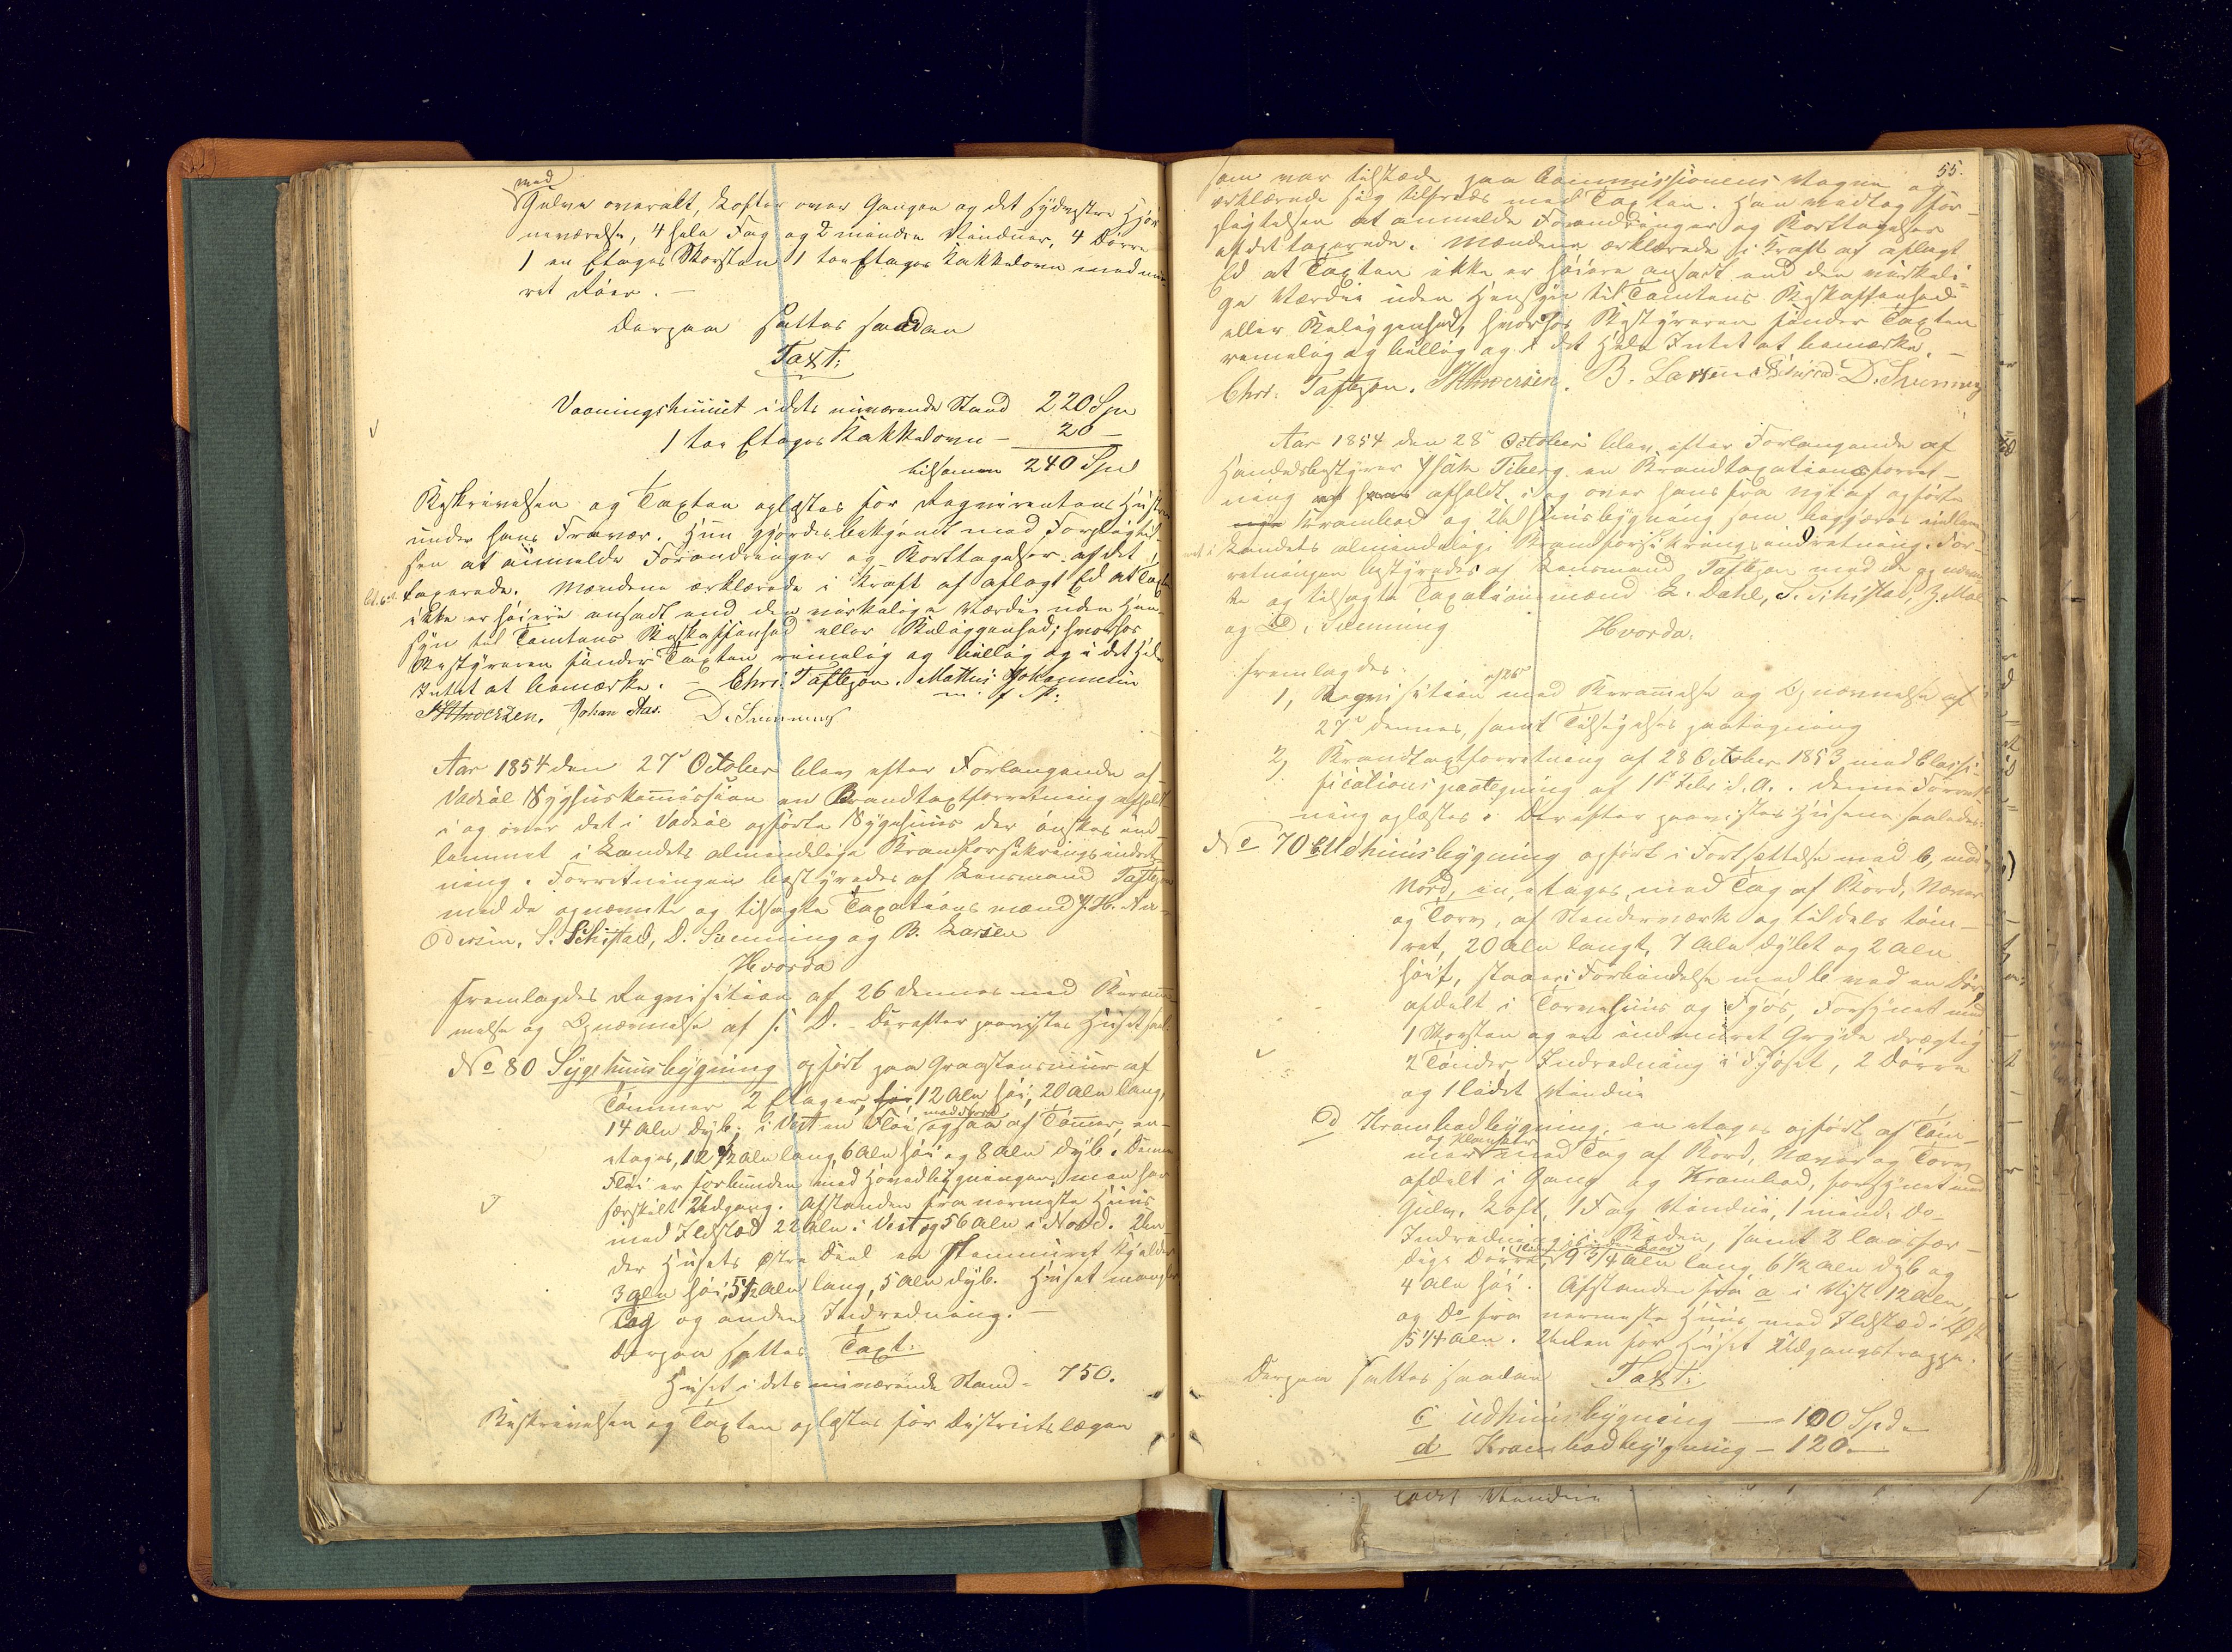 med
Gulve overalt, Lofter over Gangen og det sydvestre Hjør-
neværelse, 4 hele Fag og 2 mindre Vinduer, 4 Dørre
1 en Etages Skorsten 1 toe Etages Kakkelovn med mu-
ret Røer. -
Derpaa sattes saadan
Taxt:
Vaaningshuuset i dets nuværende Stand 220 Spd
1 toe Etages Kakkelovn - 20 -
tilsamen 240 Spd
Beskrivelsen og Taxten oplæstes for Reqvirentens Hustru
under hans Fravær. Hun gjordes bekjendt med Forpligtel-
sen at anmelde Forandringer og Borttagelser af det
taxerede. Mændene erklærede i Kraft af aflagt Ed at Taxten
ikke er høiere ansadt end den virkelige Værdie uden Hen-
syn til Tomtens Beskaffenhed eller Beliggenhed; hvorhos
Bestyreren finder Taxten rimelig og billig og i det Hele
Intet at bemærke. - Chr. Taftezon. Mathis Johannesen
m. f. P.
Andersen. Johan Aas. D. Svenning
Aar 1854 den 27de October blev efter Forlangende af
Vadsøe Sygehuskommission en Brandtaxtforretning afholdt
i og over det i Vadsøe opførte Sygehuus der ønskes ind-
lemmet i Landets almindelige Brandforsikringsindret-
ning. Forretningen bestyredes af Lensmand Taftezon
med de opnævnte og tilsagte Taxationsmænd J. H. An-
dersen, S. Schistad, D. Svenning og B. Larsen
Hvorda
fremlagdes Reqvisition af 26 dennes med Beram-
melse og Opnævnelse af s. D. - Derefter paavistes Huset saal.
No 80 Sygehuusbygning opført paa Graastensmuur af
Tømmer 2 Etager, 12 Alen høi, 20 Alen lang,
14 Alen dyb; i Vest en Fløi ogsaa af Tømmer, en-
etages, 12 1/2 Alen lang, 6 Alen høi og 8 Alen dyb. Denne
Fløi er forbunden med Hovedbygningen, men har
særskilt Udgang. Afstanden fra nærmeste Huus
med Ildsted 22 Alen i Vest og 56 Alen i Nord. Un-
der Husets østre Deel en Steenmuret Kjelder
3 Alen høi, 5 1/2 Alen lang, 5 Alen dyb. Huset mangler
Tag og anden Indredning. -
Derpaa sattes Taxt:
Huset i dets nuværende Stand - 750.
Beskrivelsen og Taxten oplæstes for Districtslægen
55.
som var tilstæde paa Commissionens Vegne og
erklærede sig tilfreds med Taxten. Han modtog For-
pligtelsen at anmelde Forandringer og Borttagelser
af det taxerede. Mændene erklærede i Kraft af aflagt
Ed at Taxten ikke er høiere ansadt end den virkeli-
ge Værdie uden Hensyn til Tomtens Beskaffenhed
eller Beliggenhed, hvorhos Bestyreren finder Taxten
rimelig og billig og i det Hele Intet at bemærke. -
Chr. Taftezon. Andersen. B. Larsen Schistad D. Svenning
Aar 1854 den 28de October blev efter Forlangende af
Handelsbestyrer Isak Tiberg en Brandtaxationsforret-
ning afholdt i og over hans fra nyt af opførte
Krambod og Udhuusbygning som begjæres indlem-
met i Landets almindelige Brandforsikringsindretning. For-
retningen bestyredes af Lensmand Taftezon med de opnævn-
te og tilsagte Taxationsmænd L. Dahl, S. Schistad,
og D. Svenning
Hvorda:
fremlagdes
1, Reqvisition med Berammelse og Opnævnelse af
27de dennes, samt Tilsigelses paategning
2, Brandtaxtforretning af 28 October 1853 med Classi-
ficationspaategning af 1ste Febr. d. A. Denne Forret-
ning oplæstes. Derefter paavistes Husene saaledes:
No 70 c Udhuusbygning opført i Fortsættelse med b, mod
Nord, en etages, med Tag af Bord, Næver
og Torv, af Stenderværk og tildels tøm-
ret, 20 Alen langt, 7 Alen dybt og 2 Alen
høit, staaer i Forbindelse med b ved en Dør,
afdelt i Torvehuus og Fjøs, Forsynet med
1 Skorsten og en indmuret Gryde drægtig
2 Tønder, Indredning i Fjøset, 2 Dørre
og 1 lidet Vindue
d Krambodbygning, en etages opført af Tøm-
mer og Planker med Tag af Bord, Næver og Torv
afdelt i Gang og Krambod, forsynet med
Gulv, Loft, 1 Fag Vindue, 1 mind. Do
Indredning i Boden, samt 2 laasfær-
dige Dørre, 9 3/4 Alen lang 6 1/2 Alen dyb og
4 Alen høi. Afstanden fra a i Vest 12 Alen,
og Do fra nærmeste Huus med Ildsted i Øst
15 1/4 Alen. Uden for Huset Udgangstrappe.
Derpaa sattes saadan Taxt:
c Udhuusbygning - 100 Spd.
d Krambodbygning - 120 -
lidet Vindue